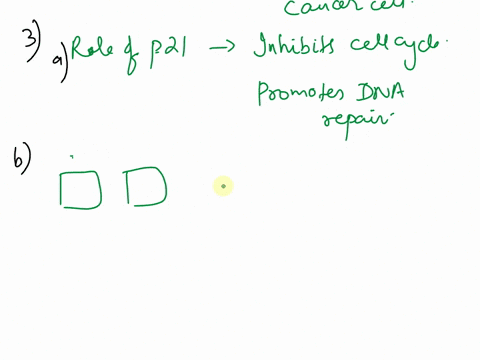 Cancer cell.
3) a) Role of p21 → Inhibits cell cycle.
Promotes DNA
repair.
b)